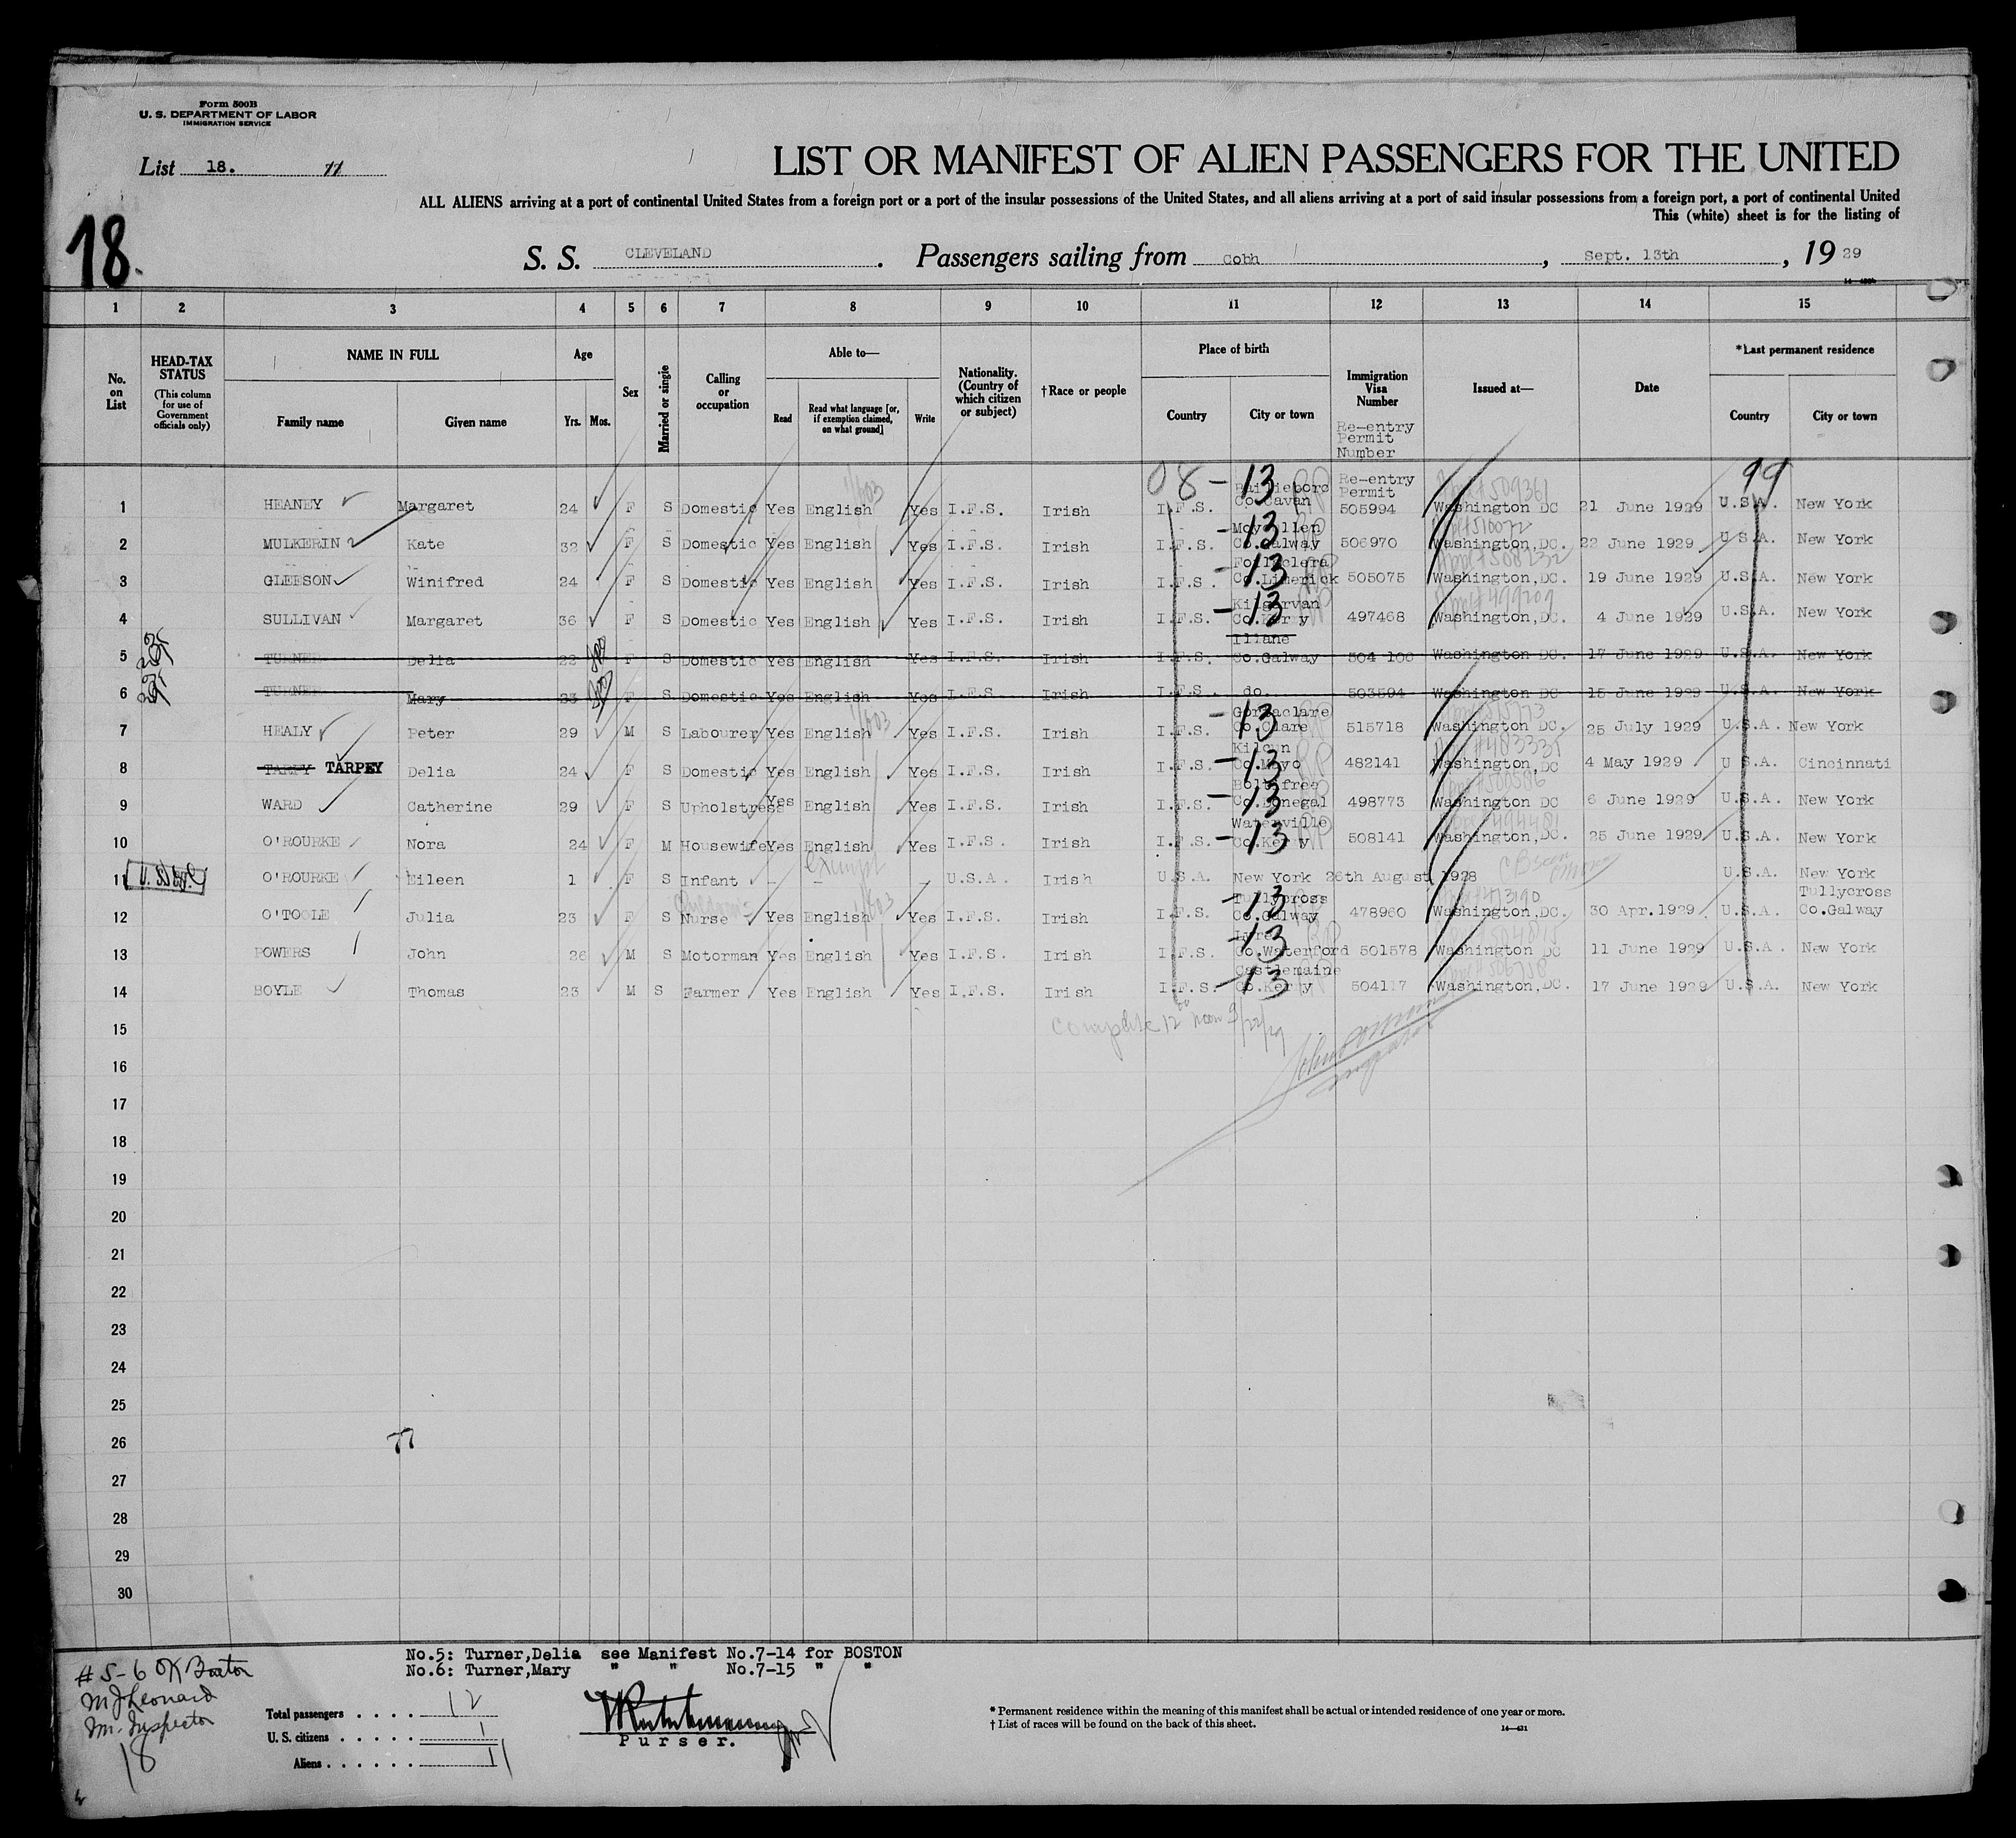 Form 500B
U. S. DEPARTMENT OF LABOR
IMMIGRATION SERVICE
List 18. 11
LIST OR MANIFEST OF ALIEN PASSENGERS FOR THE UNITED
ALL ALIENS arriving at a port of continental United States from a foreign port or a port of the insular possessions of the United States, and all aliens arriving at a port of said insular possessions from a foreign port, a port of continental United
This (white) sheet is for the listing of
18.
S. S. CLEVELAND. Passengers sailing from Cobh, Sept. 13th, 19 29
1 2 3 4 5 6 7 8 9 10 11 12 13 14 15
No. on List
HEAD-TAX STATUS
(This column for use of Government officials only)
NAME IN FULL
Family name Given name
Age
Yrs. Mos.
Sex
Married or single
Calling or occupation
Able to—
Read Read what language [or, if exemption claimed, on what ground] Write
Nationality. (Country of which citizen or subject)
†Race or people
Place of birth
Country City or town
Immigration Visa Number
Re-entry Permit Number
Issued at—
Date
*Last permanent residence
Country City or town
08 - 13 99
Re-entry Permit
1 HEANEY Margaret 24 F S Domestic Yes English Yes I.F.S. Irish I.F.S. Co.Cavan 505994 Washington DC 21 June 1929 U.S.A. New York
2 MULKERIN Kate 32 F S Domestic Yes English Yes I.F.S. Irish I.F.S. -13 Co.Galway 506970 Washington,DC. 22 June 1929 U.S.A. New York
3 GLEESON Winifred 24 F S Domestic Yes English Yes I.F.S. Irish I.F.S. -13 Co.Limerick 505075 Washington,DC. 19 June 1929 U.S.A. New York
4 SULLIVAN Margaret 36 F S Domestic Yes English Yes I.F.S. Irish I.F.S. -13 Kilgarvan Co.Kerry 497468 Washington,DC. 4 June 1929 U.S.A. New York
5 TURNER Delia 22 F S Domestic Yes English Yes I.F.S. Irish I.F.S. Illane Co.Galway 504 100 Washington DC. 17 June 1929 U.S.A. New York
6 TURNER Mary 23 F S Domestic Yes English Yes I.F.S. Irish I.F.S. do. 503594 Washington DC 15 June 1929 U.S.A. New York
7 HEALY Peter 29 M S Labourer Yes English Yes I.F.S. Irish I.F.S. -13 Co.Clare 515718 Washington DC. 25 July 1929 U.S.A. New York
8 TARPY TARPEY Delia 24 F S Domestic Yes English Yes I.F.S. Irish I.F.S. -13 Co.Mayo 482141 Washington,DC 4 May 1929 U.S.A. Cincinnati
9 WARD Catherine 29 F S Upholstress Yes English Yes I.F.S. Irish I.F.S. -13 Co.Donegal 498773 Washington DC 6 June 1929 U.S.A. New York
10 O'ROURKE Nora 24 F M Housewife Yes English Yes I.F.S. Irish I.F.S. -13 Waterville Co.Kerry 508141 Washington,DC. 25 June 1929 U.S.A. New York
exempt
11 O'ROURKE Eileen 1 F S Infant - - - U.S.A. Irish U.S.A. New York 26th August 1928 U.S.A. New York
12 O'TOOLE Julia 23 F S Nurse Yes English Yes I.F.S. Irish I.F.S. -13 Tullycross Co.Galway 478960 Washington,DC. 30 Apr.1929 U.S.A. Tullycross Co.Galway
13 POWERS John 26 M S Motorman Yes English Yes I.F.S. Irish I.F.S. -13 Co.Waterford 501578 Washington DC 11 June 1929 U.S.A. New York
14 BOYLE Thomas 23 M S Farmer Yes English Yes I.F.S. Irish I.F.S. -13 Castlemaine Co.Kerry 504117 Washington,DC. 17 June 1929 U.S.A. New York
15
Complete 12 noon 9/22/29
16
17
18
19
20
21
22
23
24
25
26
27
28
29
30
No.5: Turner,Delia see Manifest No.7-14 for BOSTON
No.6: Turner,Mary " " No.7-15 " "
# 5-6 OK Boston
M J Leonard
Im. Inspector
18
Total passengers . . . . 12
U. S. citizens . . . . . 1
Aliens . . . . . . 11
Purser.
* Permanent residence within the meaning of this manifest shall be actual or intended residence of one year or more.
† List of races will be found on the back of this sheet.
14—421